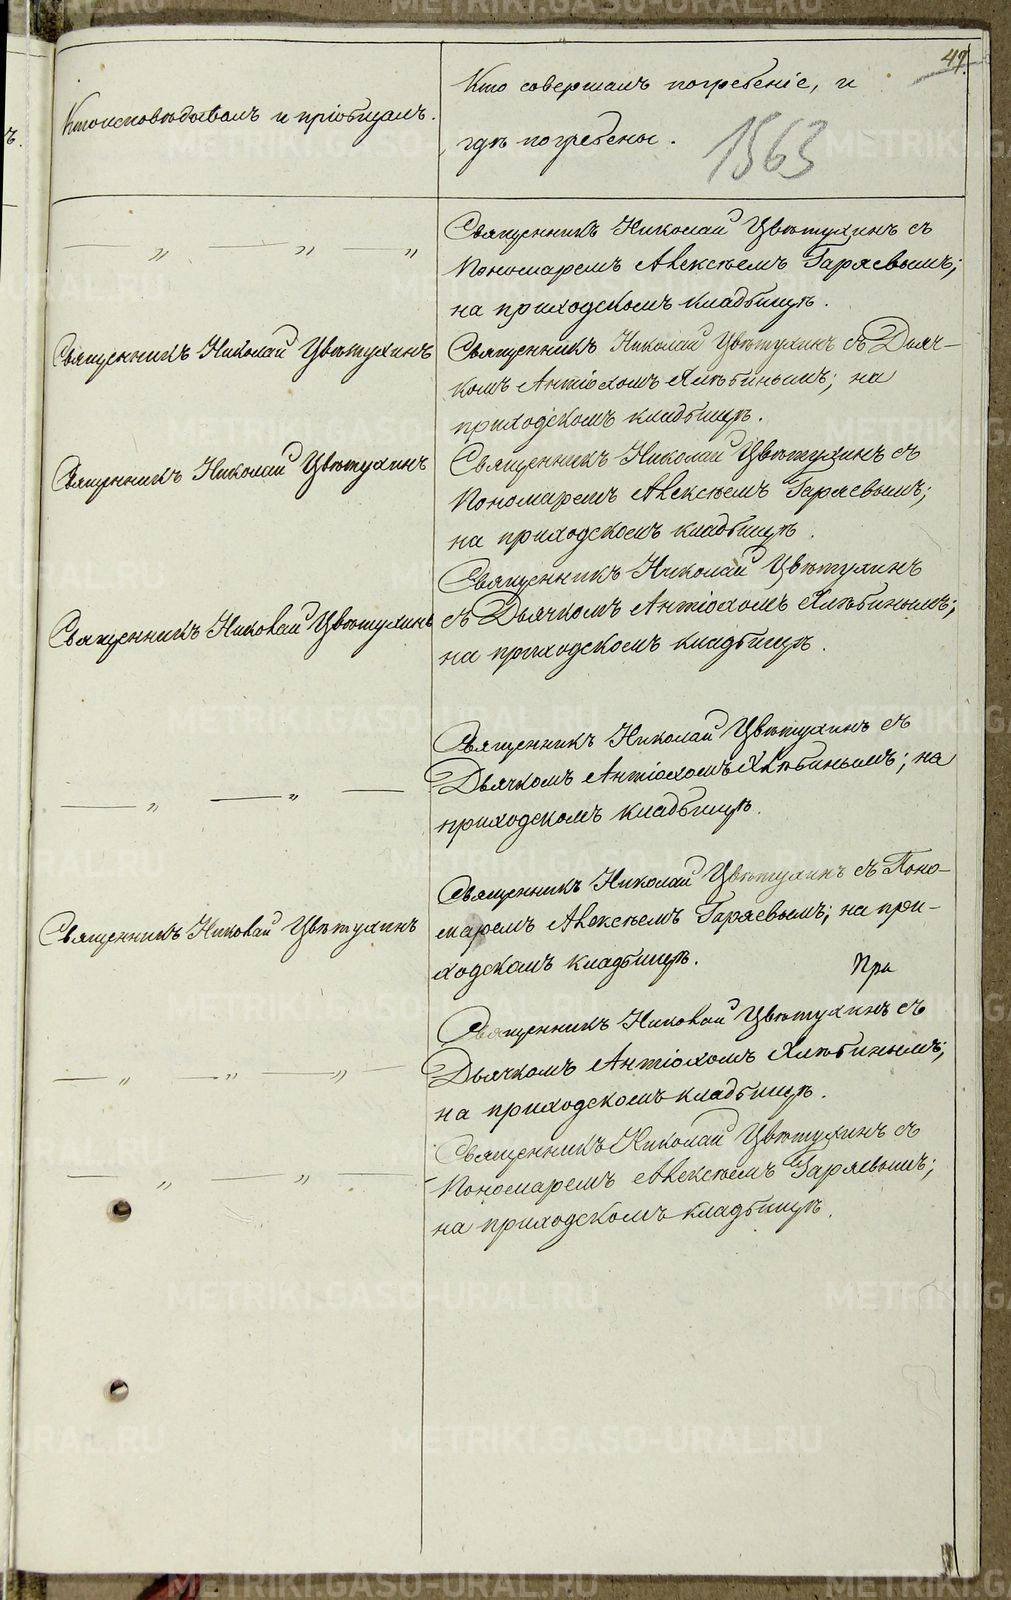 47.
Кто исповѣдывалъ и пріобщалъ.
Кто совершалъ погребеніе, и
гдѣ погребены.
1563
„ — „ — „
Священникъ Николай Цвѣтухинъ съ
Пономаремъ Алексѣемъ Гаряевымъ;
на приходскомъ кладбищѣ.
Священникъ Николай Цвѣтухинъ
Священникъ Николай Цвѣтухинъ съ Дьяч-
комъ Антіохомъ Хлѣбинымъ; на
приходскомъ кладбищѣ.
Священникъ Николай Цвѣтухинъ
Священникъ Николай Цвѣтухинъ съ
Пономаремъ Алексѣемъ Гаряевымъ;
на приходскомъ кладбищѣ.
Священникъ Николай Цвѣтухинъ
Священникъ Николай Цвѣтухинъ
съ Дьячкомъ Антіохомъ Хлѣбинымъ;
на приходскомъ кладбищѣ.
— „ — „ —
Священникъ Николай Цвѣтухинъ съ
Дьячкомъ Антіохомъ Хлѣбинымъ; на
приходскомъ кладбищѣ.
Священникъ Николай Цвѣтухинъ
Священникъ Николай Цвѣтухинъ съ Поно-
маремъ Алексѣемъ Гаряевымъ; на при-
ходскомъ кладбищѣ.
При
— „ — „ — „ —
Священникъ Николай Цвѣтухинъ съ
Дьячкомъ Антіохомъ Хлѣбинымъ;
на приходскомъ кладбищѣ.
— „ — „ —
Священникъ Николай Цвѣтухинъ съ
Пономаремъ Алексѣемъ Гаряевымъ;
на приходскомъ кладбищѣ.
METRIKI.GASO-URAL.RU